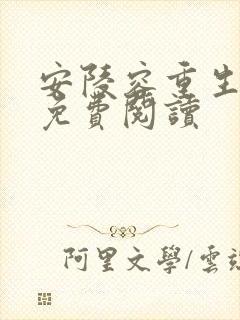 安陵容重生
免費閱讀
阿里文學/雲